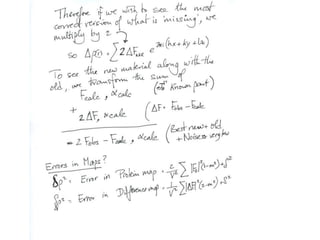 Therefore if we wish to see the most
correct version of what is missing, we
multiply by 2.
so Δρ(r) = Σ 2ΔF e^2πi(hx+ky+lz)
To see the new material along with the
old, we transform the sum of
Fcalc, αcalc (known part)
+ 2ΔF, αcalc (ΔF = Fobs - Fcalc
= 2Fobs - Fcalc, αcalc (Best new + old
+ Noise
Errors in Maps?
δρ² = Error in Protein map = 2/V² Σ
δρ² = Error in Difference map = 1/V² Σ